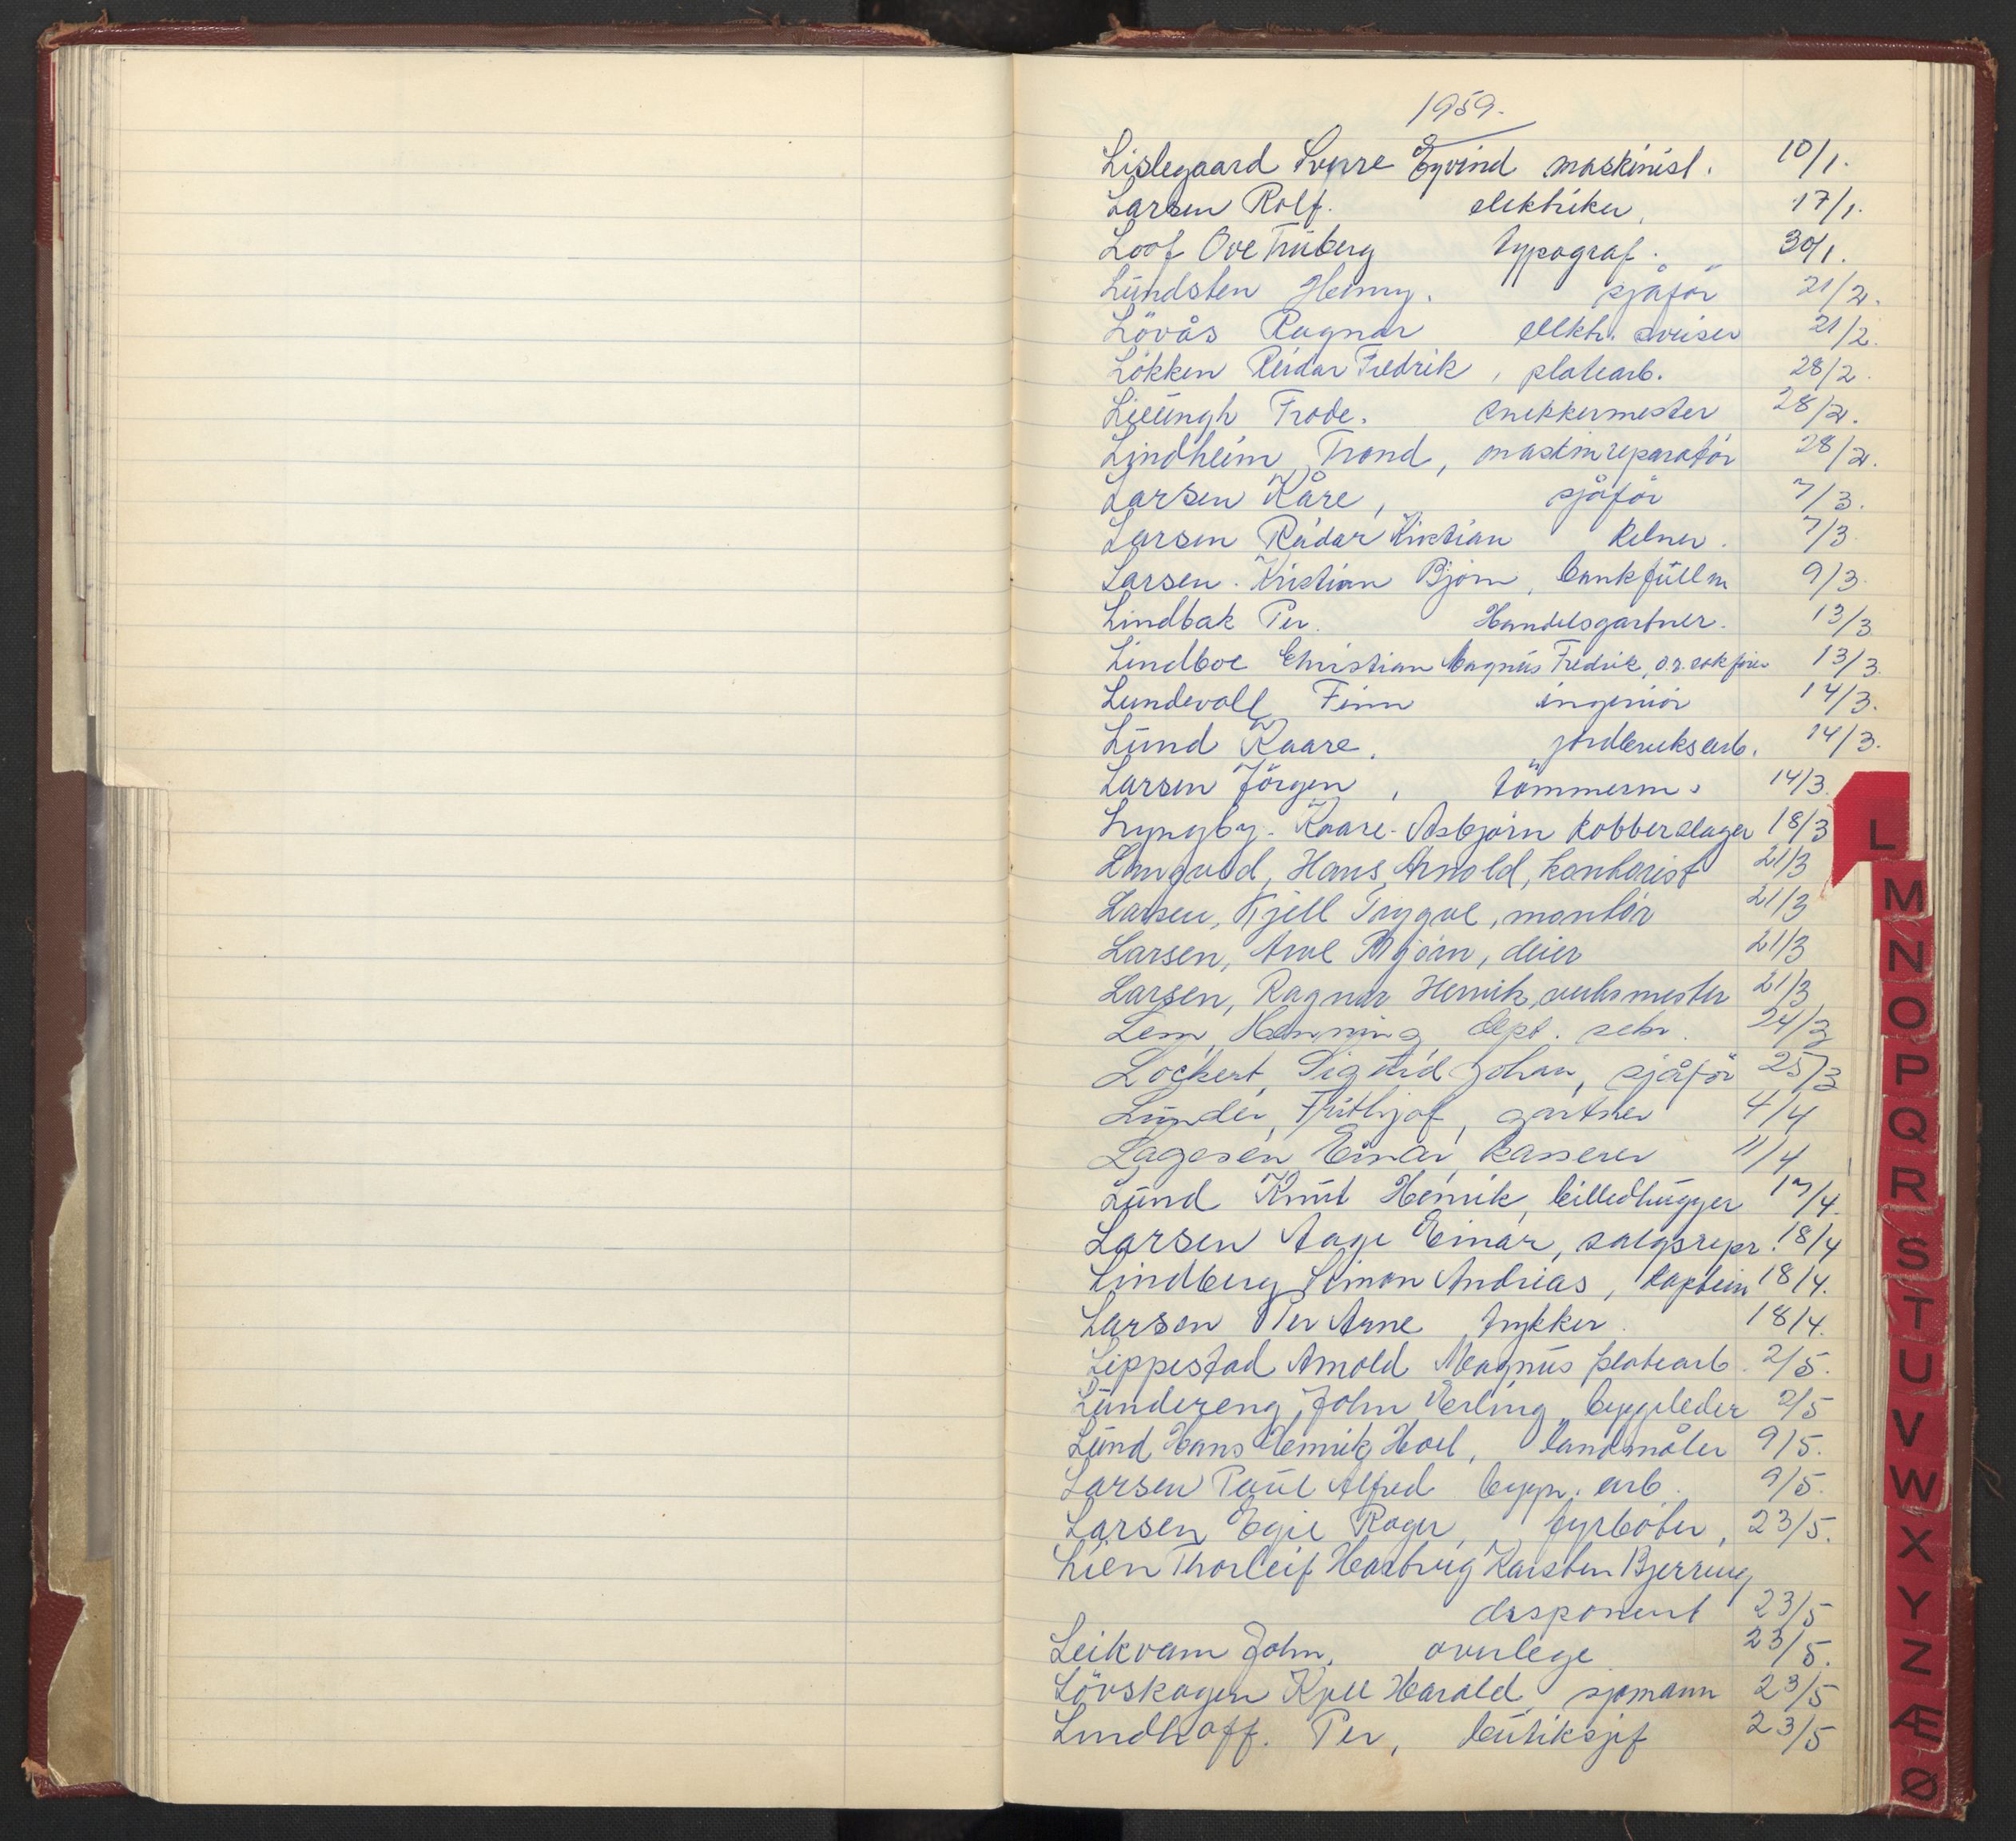 1959.
Lislegaard Sverre Eyvind maskinist. 10/1.
Larsen Rolf. elektriker. 17/1.
Loof Ove Truberg typograf. 30/1.
Lundsten Henry. sjåför 21/2.
Lövås Ragnar elektr. sveiser 21/2.
Lökken Reidar Fredrik, platearb. 28/2.
Lieungh Frode. snekkermester 28/2.
Lindheim Trond, maskinreparatör 28/2.
Larsen Kåre, sjåför 7/3.
Larsen Reidar Kristian Kelner. 7/3
Larsen. Kristian Björn, bankfullm 9/3.
Lindbak Per. Handelsgartner. 13/3
Lindboe Christian Magnus Fredrik, o.r.sakförer 13/3.
Lundevall Finn ingeniör 14/3.
Lund Kaare. jordbruksarb. 14/3.
Larsen Jörgen, tömmerm. 14/3.
Lyngby. Kaare. Asbjörn kobberslager 18/3
Langved, Hans Arnold, kontorist 21/3
Larsen, Kjell Tryggve, montör 21/3
Larsen, Arve Björn, eier 21/3
Larsen, Ragnar Henrik, verksmester 21/3
Lem, Henning dept. sekr. 24/3
Lockert, Sigurd Johan, sjåför 25/3
Lunder, Frithjof, gartner 4/4
Lagesen Einar kasserer 11/4
Lund Knut Henrik, billedhugger 17/4.
Larsen Aage Einar, salgsrepr. 18/4
Lindberg Simon Andreas, kaptein 18/4.
Larsen Per Arne trykker. 18/4.
Lippestad Arnold Magnus platearb. 2/5.
Lundereng, John Erling byggleder 2/5
Lund Hans Henrik Hoel, landmåler 9/5.
Larsen Paul Alfred bygn. arb. 9/5.
Larsen Egil Roger, fyrböter, 23/5.
Lien Thorleif Hartvig Karsten Bjerring
disponent 23/5
Leikvam John, overlege 23/5.
Lövskogen Kjell Harald sjömann 23/5
Lindhoff. Per, butiksjef 23/5
L
M
N
O
P
Q
R
S
T
U
V
W
X
Y
Z
Æ
Ø